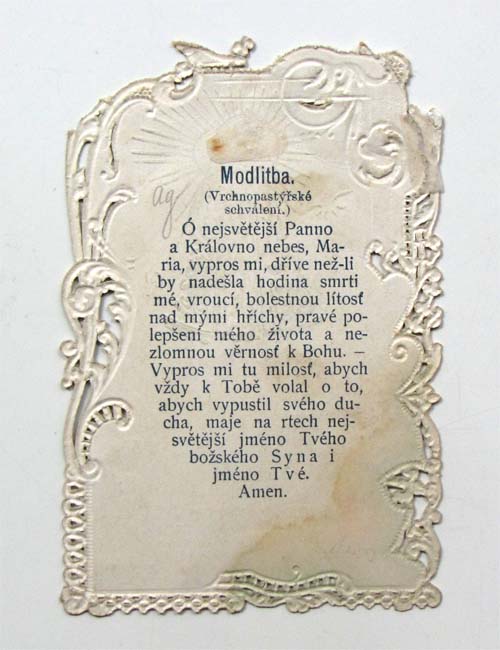 Modlitba.
(Vrchnopastýřské
schválení.)
Ó nejsvětější Panno
a Královno nebes, Ma-
ria, vypros mi, dříve než-li
by nadešla hodina smrti
mé, vroucí, bolestnou lítosť
nad mými hříchy, pravé po-
lepšení mého života a ne-
zlomnou věrnosť k Bohu. –
Vypros mi tu milosť, abych
vždy k Tobě volal a to,
abych vypustil svého du-
cha, maje na rtech nej-
světější jméno Tvého
božského Syna i
jméno Tvé.
Amen.